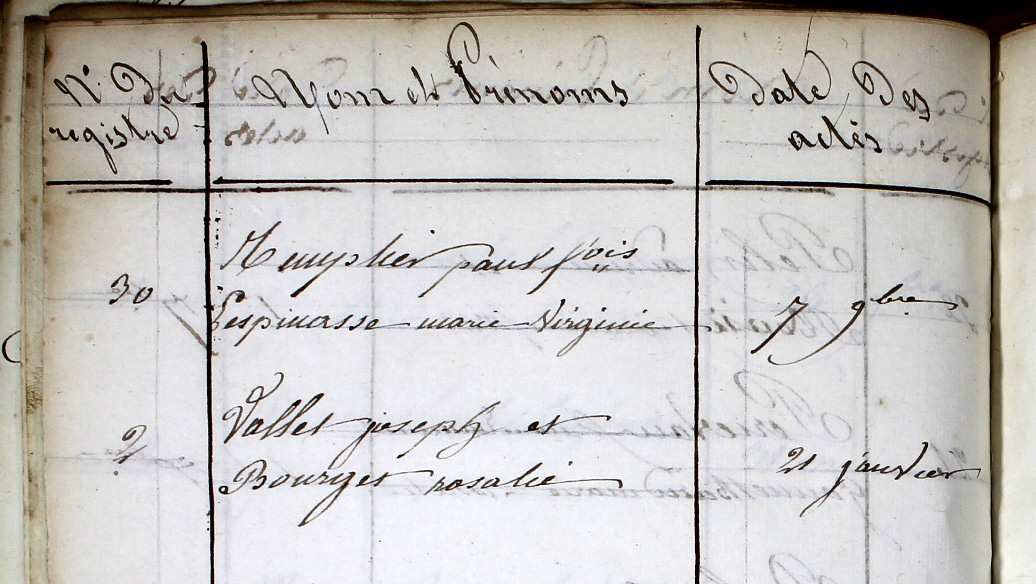 N° Du registre
Nom et Prénoms
Date Des actes
30
Templier paul fçois
Lespinasse marie Virginie
7 9bre
2
Vallet joseph et
Bourget rosalie
21 janvier